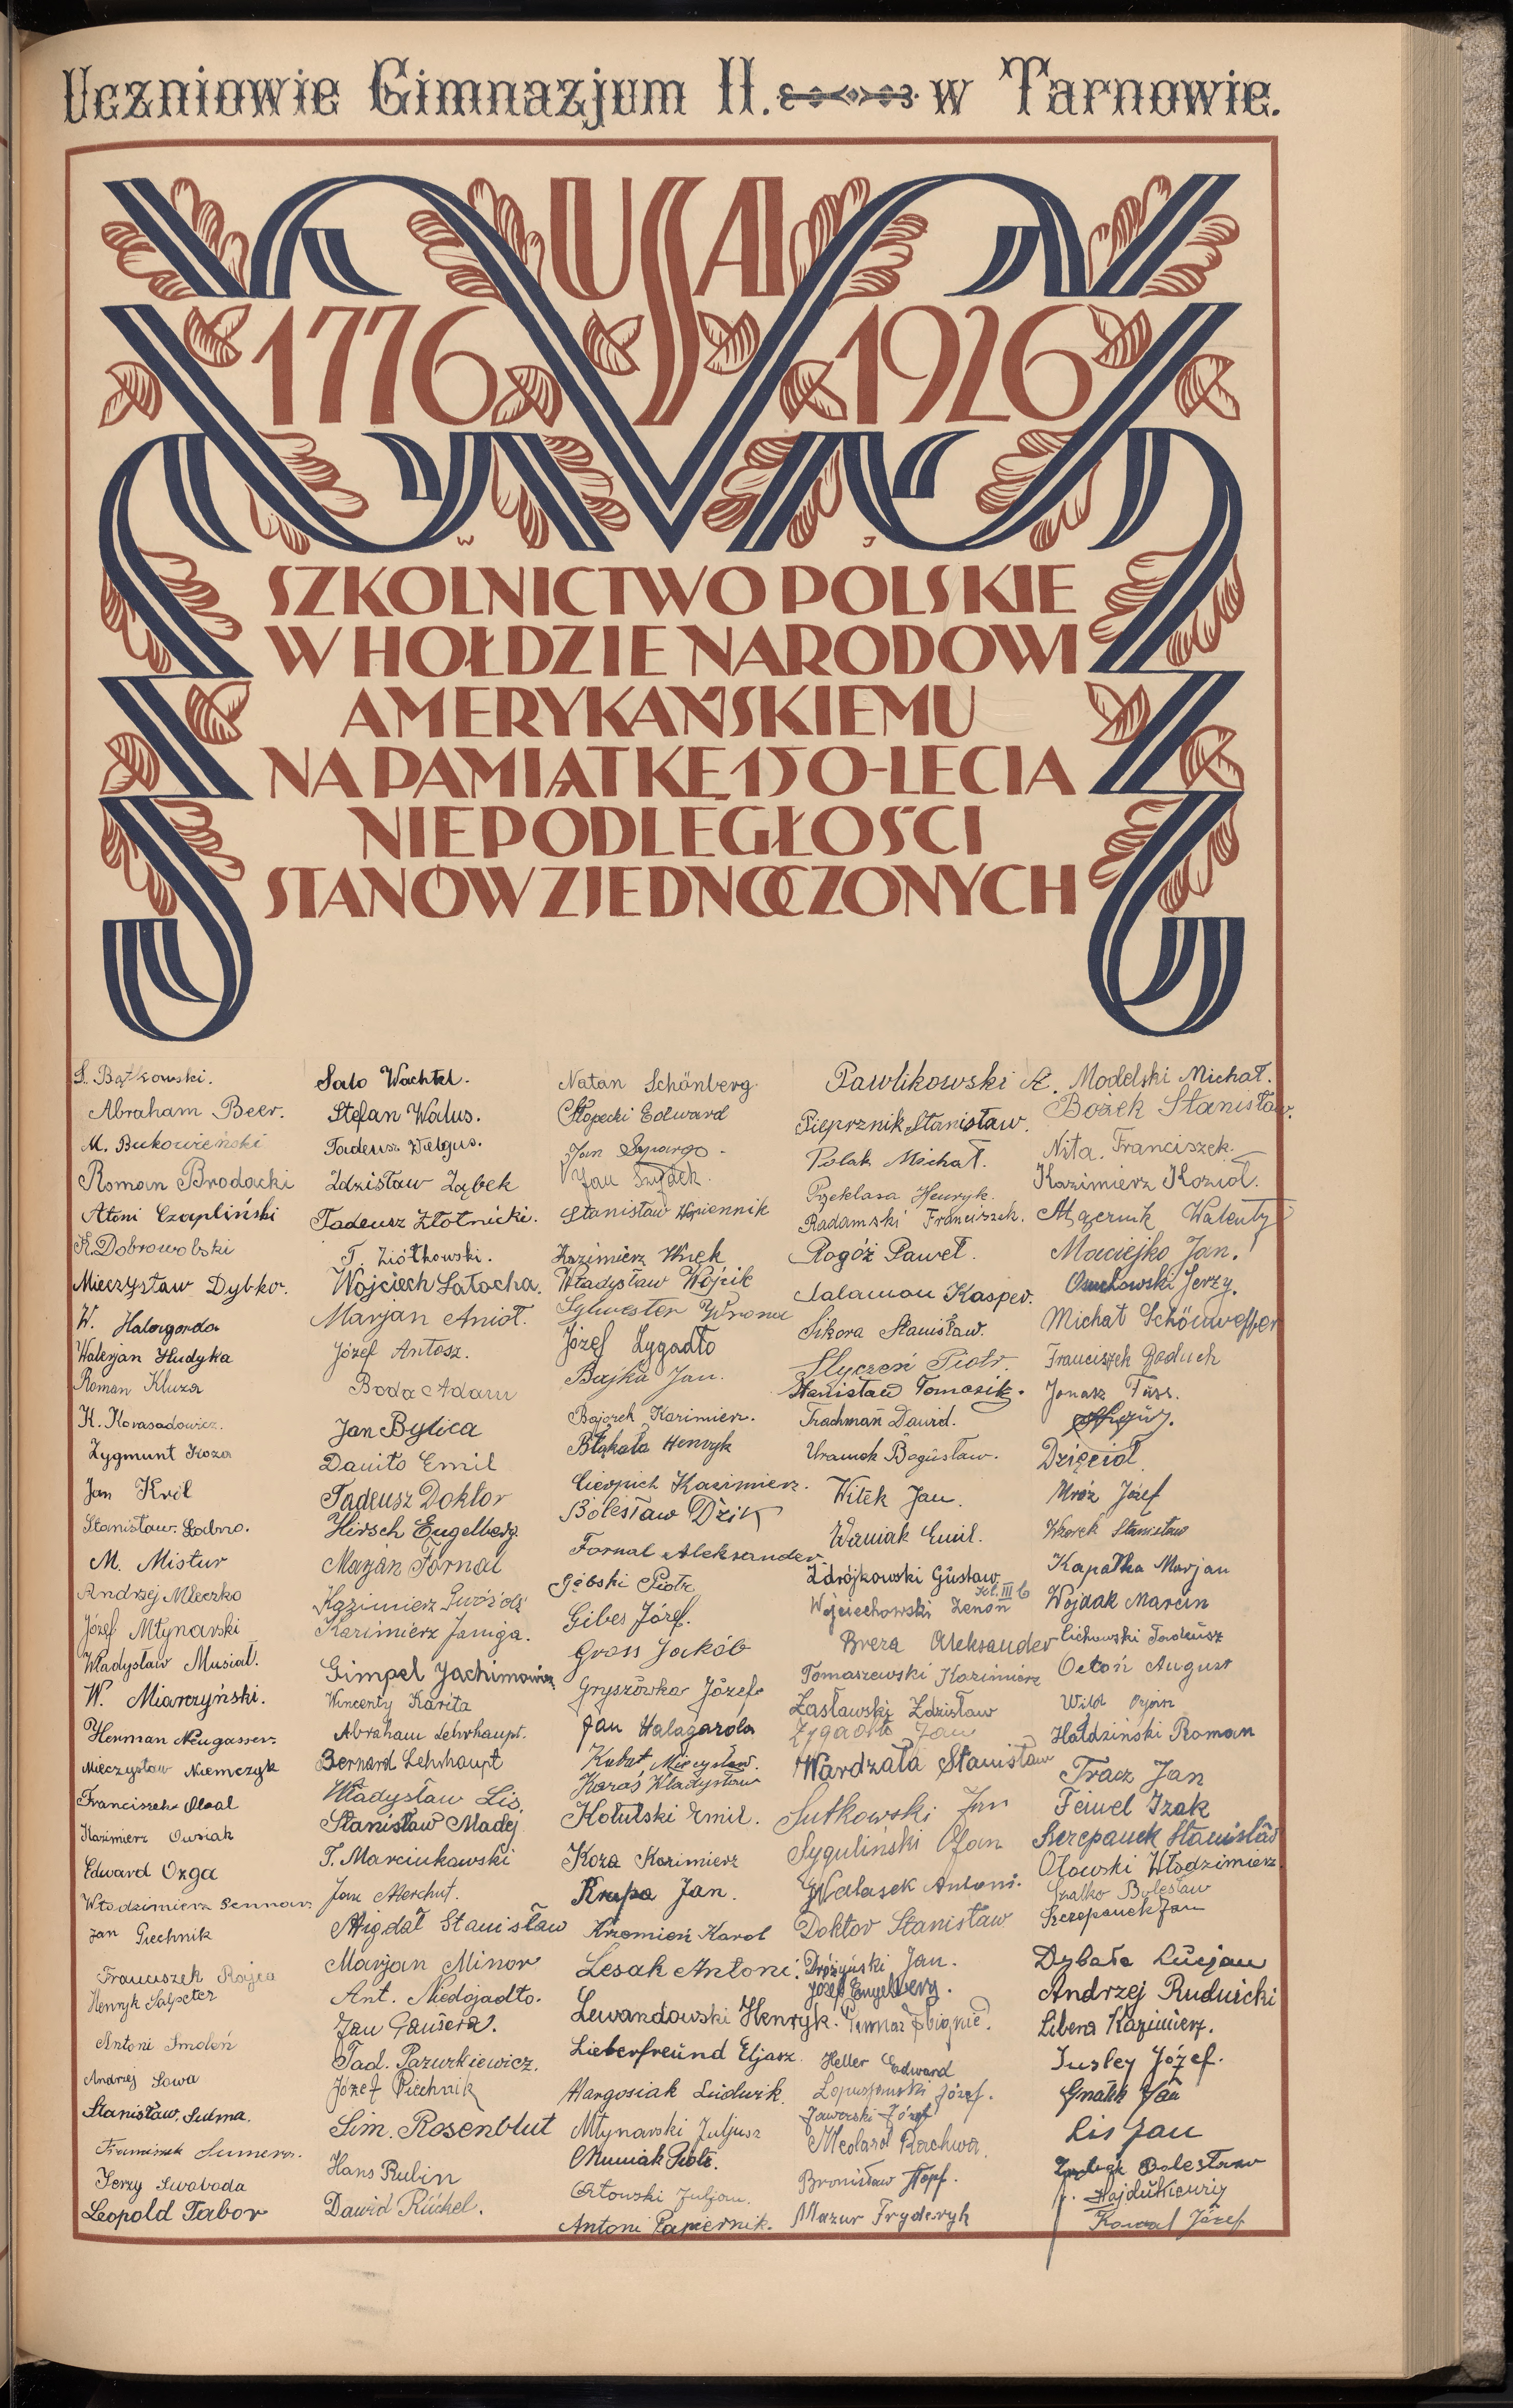 Uczniowie Gimnazjum II. w Tarnowie.
USA
1776 1926
W J
SZKOLNICTWO POLSKIE
W HOŁDZIE NARODOWI
AMERYKAŃSKIEMU
NA PAMIĄTKĘ 150-LECIA
NIEPODLEGŁOŚCI
STANÓW ZJEDNOCZONYCH
S. Bątkowski.
Abraham Beer.
M. Bukowieński
Roman Brodacki
Atoni Czapliński
K. Dobrowolski
Mieczysław Dybko.
W. Halagarda
Walerjan Hudyka
Roman Kluza
K. Korasadowicz.
Zygmunt Koza
Jan Król
Stanisław Łabno.
M. Mistur
Andrzej Mleczko
Józef Młynarski
Władysław Musiał.
W. Miarczyński.
Herman Neugasser
Mieczysław Niemczyk
Franciszek Oleal
Kazimierz Owsiak
Edward Ozga
Włodzimierz Pennar
Jan Piechnik
Franciszek Rajca
Henryk Salpeter
Antoni Smoleń
Andrzej Sowa
Stanisław Sudma.
Franciszek Sumera.
Jerzy Swoboda
Leopold Tabor
Salo Wachtel.
Stefan Walus.
Tadeusz Wałgus.
Zdzisław Ząbek
Tadeusz Złotnicki.
T. Ziółkowski.
Wojciech Łatocha.
Marjan Anioł.
Józef Antosz.
Boda Adam
Jan Bylica
Danito Emil
Tadeusz Doktor
Hirsch Engelberg
Marjan Fornal
Kazimierz Gwóźdź
Kazimierz Jamga.
Gimpel Jachimowicz
Wincenty Karita
Abraham Lehrhaupt.
Bernard Lehrhaupt
Władysław Lis
Stanisław Madej
T. Marciukowski
Jan Merchut.
Migdał Stanisław
Marjan Minor
Ant. Niedojadło.
Jan Pansera.
Tad. Pazurkiewicz.
Józef Piechnik
Sim. Rosenblut
Hans Rubin
Dawid Rückel.
Natan Schönberg
Słopecki Edward
Jan Szpargo.
Jan Szydek.
Stanisław Wapiennik
Kazimierz Wnęk
Władysław Wójcik
Sylwester Wrona
Józef Zygadło
Bajka Jan.
Bajorek Kazimierz.
Błąkała Henryk
Cierpich Kazimierz.
Bolesław Dzik
Fornal Aleksander
Gębski Piotr
Gibes Józef.
Gross Jakób
Gryszówka Józef
Jan Halagarda
Kubat Mieczysław.
Karaś Władysław
Kotulski Emil.
Koza Kazimierz
Krupa Jan.
Krzemień Karol
Lesak Antoni.
Lewandowski Henryk.
Lieberfreund Eljasz
Margosiak Ludwik
Młynarski Juljusz
Muniak Piotr.
Orłowski Juljan.
Antoni Papiernik.
Pawlikowski A.
Pieprznik Stanisław.
Polak Michał.
Przeklasa Henryk.
Radamski Franciszek.
Rogóż Paweł.
Salamon Kasper.
Sikora Stanisław.
Styczeń Piotr.
Stanisław Tomasik.
Trachman Dawid.
Uramek Bogusław.
Witek Jan.
Waniak Emil.
Zdrójkowski Gustaw
kl. III b
Wojciechowski Zenon
Breza Aleksander
Tomaszewski Kazimierz
Zasławski Zdzisław
Zygadło Jan
Wardzała Stanisław
Sutkowski Jan
Syguliński Jan
Walasek Antoni.
Doktor Stanisław
Dróżyński Jan.
Józef Engelberg.
Zbigniew.
Heller Edward
Łopuszański Józef.
Jaworski Józef
Medard Rachwa
Bronisław Hopf.
Mazur Fryderyk
Modelski Michał.
Bożek Stanisław.
Nita Franciszek.
Kazimierz Kozioł.
Mącznik Walenty
Maciejko Jan.
Osuchowski Jerzy.
Michał Schönwetter
Franciszek Boduch
Jonasz Füss.
Dzięcioł
Mróz Józef
Wzorek Stanisław
Kapałka Marjan
Wojdak Marcin
Cichowski Tadeusz
Octoń August
Wild
Hałdziński Roman
Tracz Jan
Feiwel Izak
Szczepanek Stanisław
Olowski Włodzimierz
Szatko Bolesław
Szczepanek Jan
Dybała Lucjan
Andrzej Rudnicki
Libera Kazimierz.
Tusley Józef.
Gnatek Jan
Lis Jan
Bolesław
Hajdukiewicz
Kowal Józef